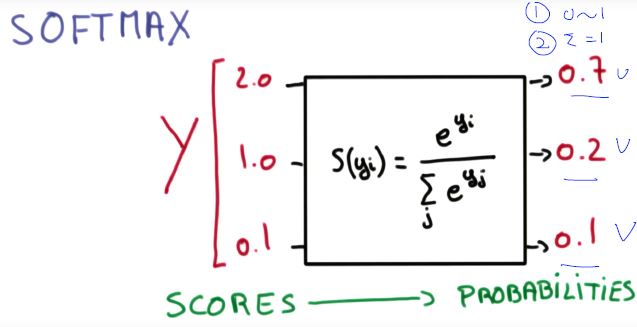 SOFTMAX
① 0~1
② Σ=1
Y
2.0
1.0
0.1
S(yᵢ) = e^{yᵢ} / Σⱼ e^{yⱼ}
→0.7 ∪
→0.2 ∪
→0.1 V
SCORES ⟶ PROBABILITIES